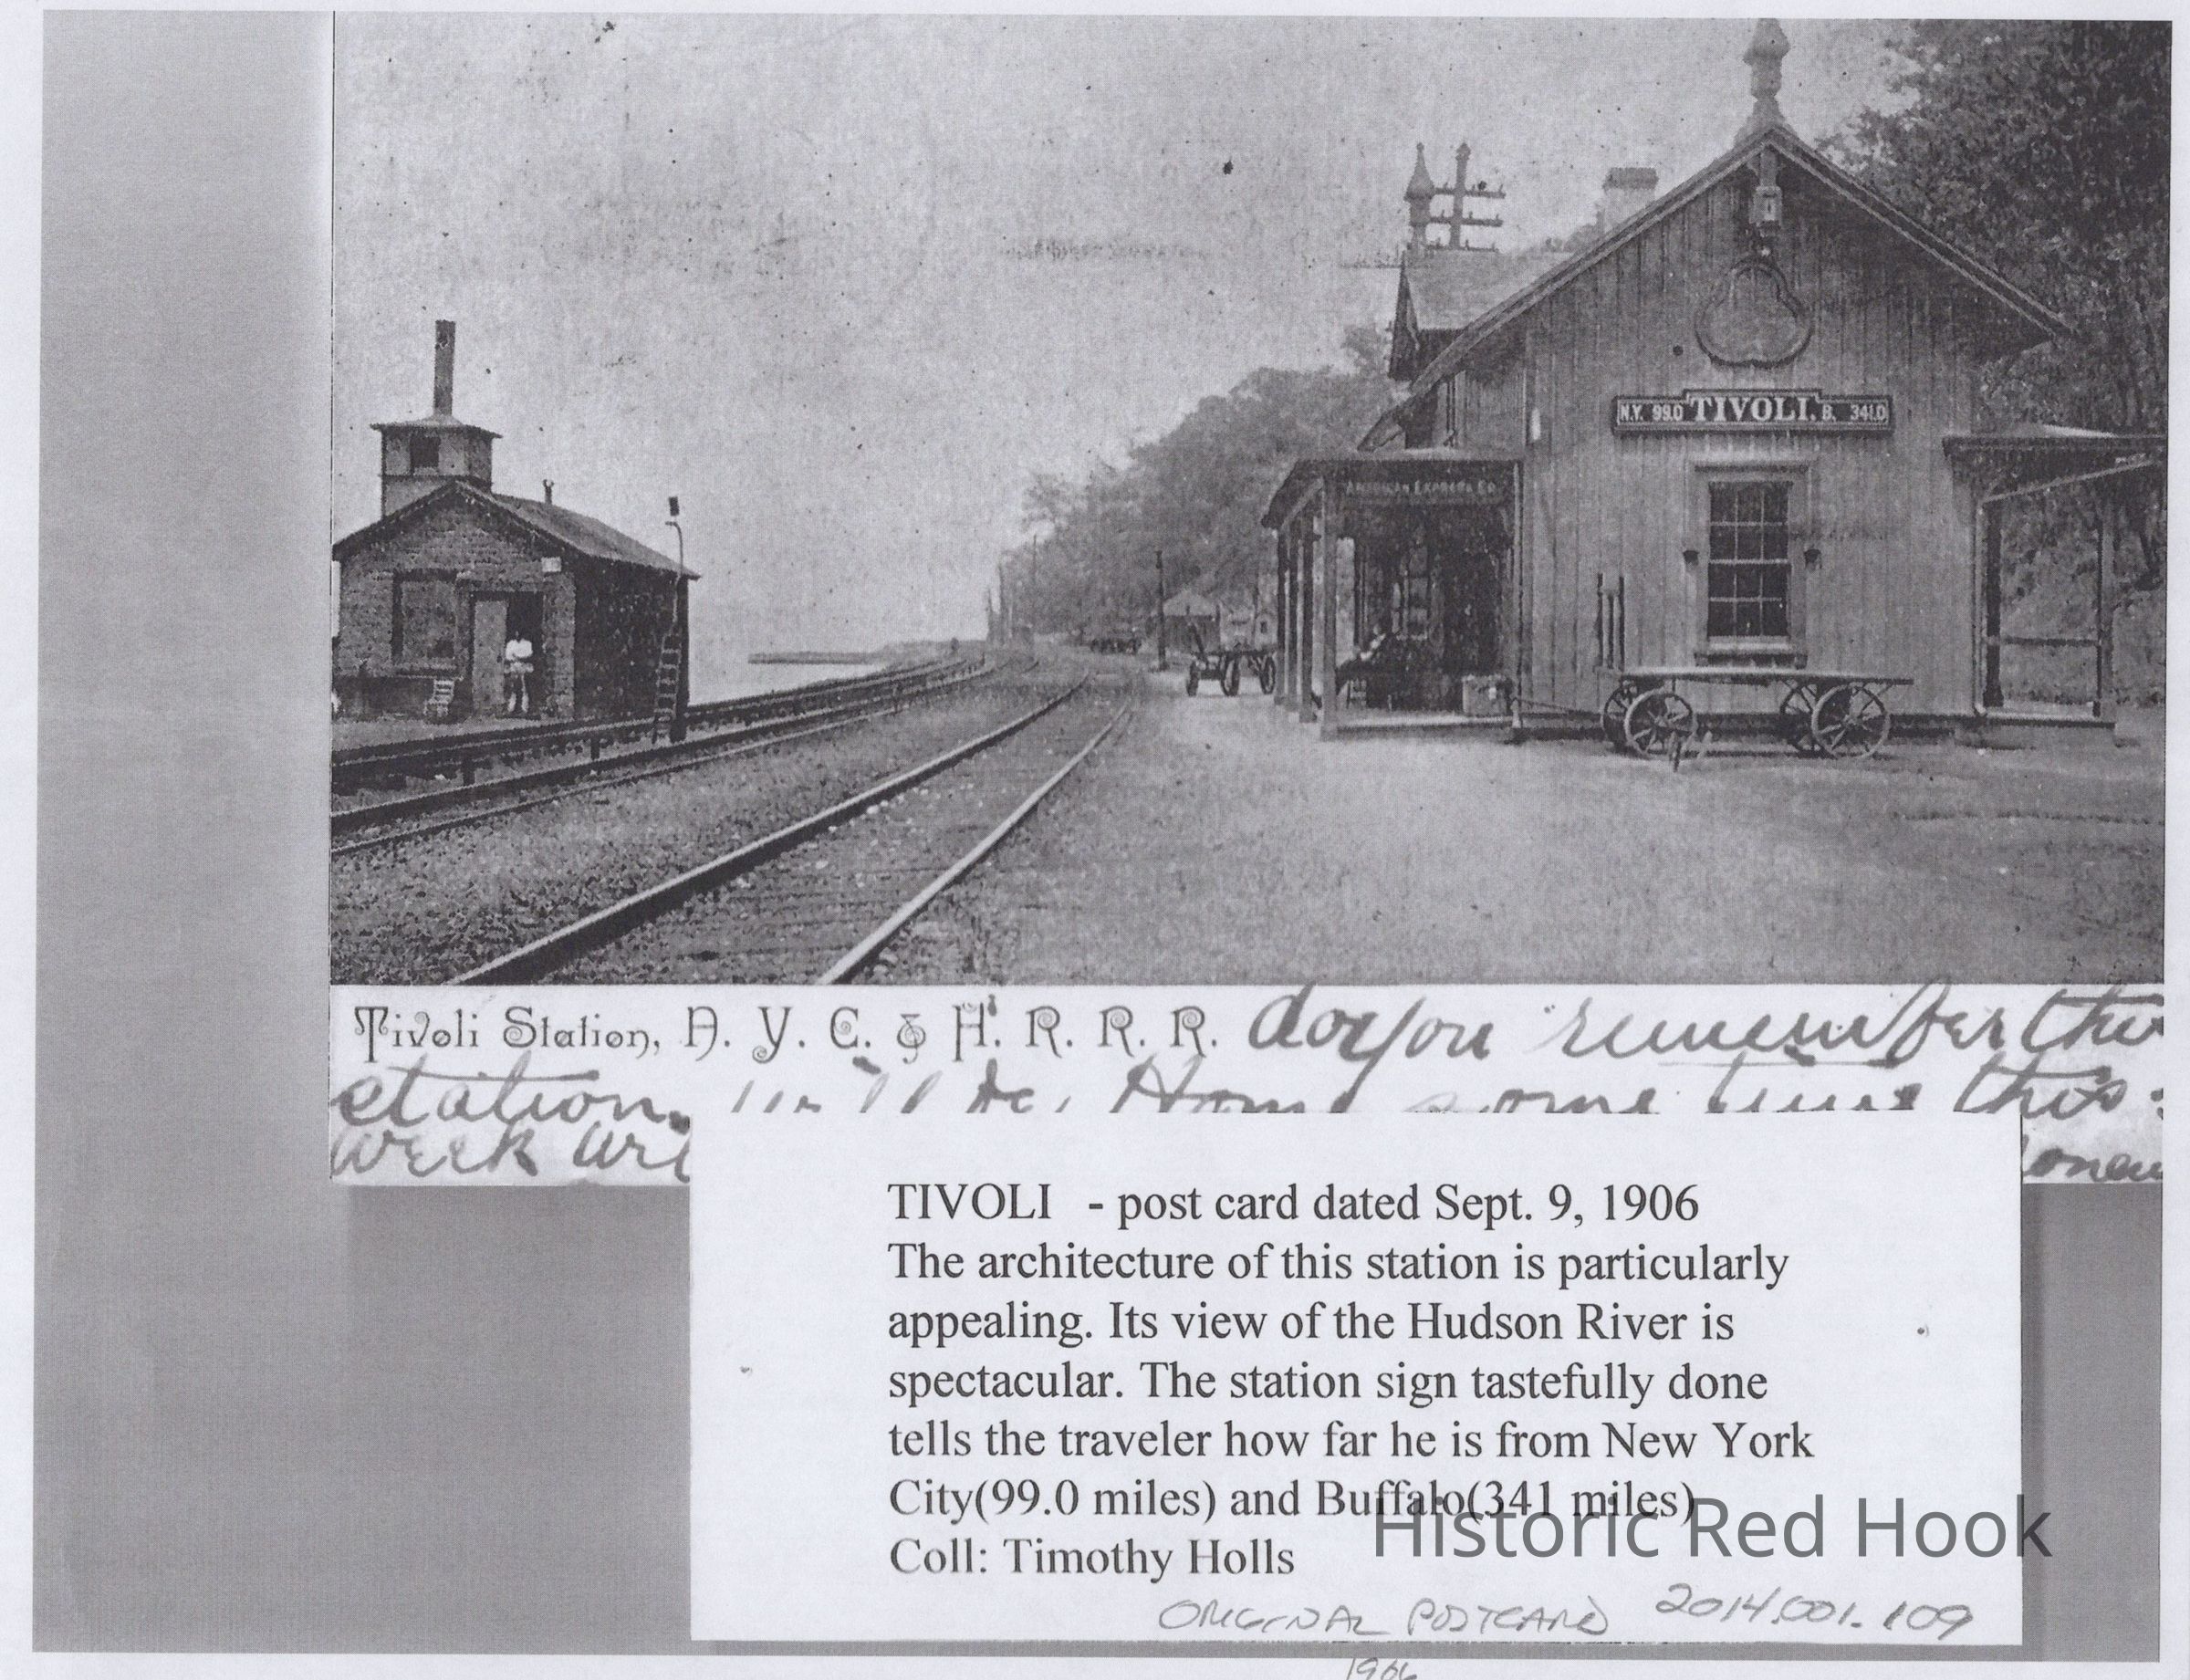 N.Y. 99.0 TIVOLI. B. 341.0
AMERICAN EXPRESS CO
Tivoli Station, N. Y. C. & H. R. R. R. do you remember this
station. will be Home some time this
week
TIVOLI - post card dated Sept. 9, 1906
The architecture of this station is particularly
appealing. Its view of the Hudson River is
spectacular. The station sign tastefully done
tells the traveler how far he is from New York
City(99.0 miles) and Buffalo(341 miles)
Coll: Timothy Holls
Historic Red Hook
ORIGINAL POSTCARD 2014.001.109
1906